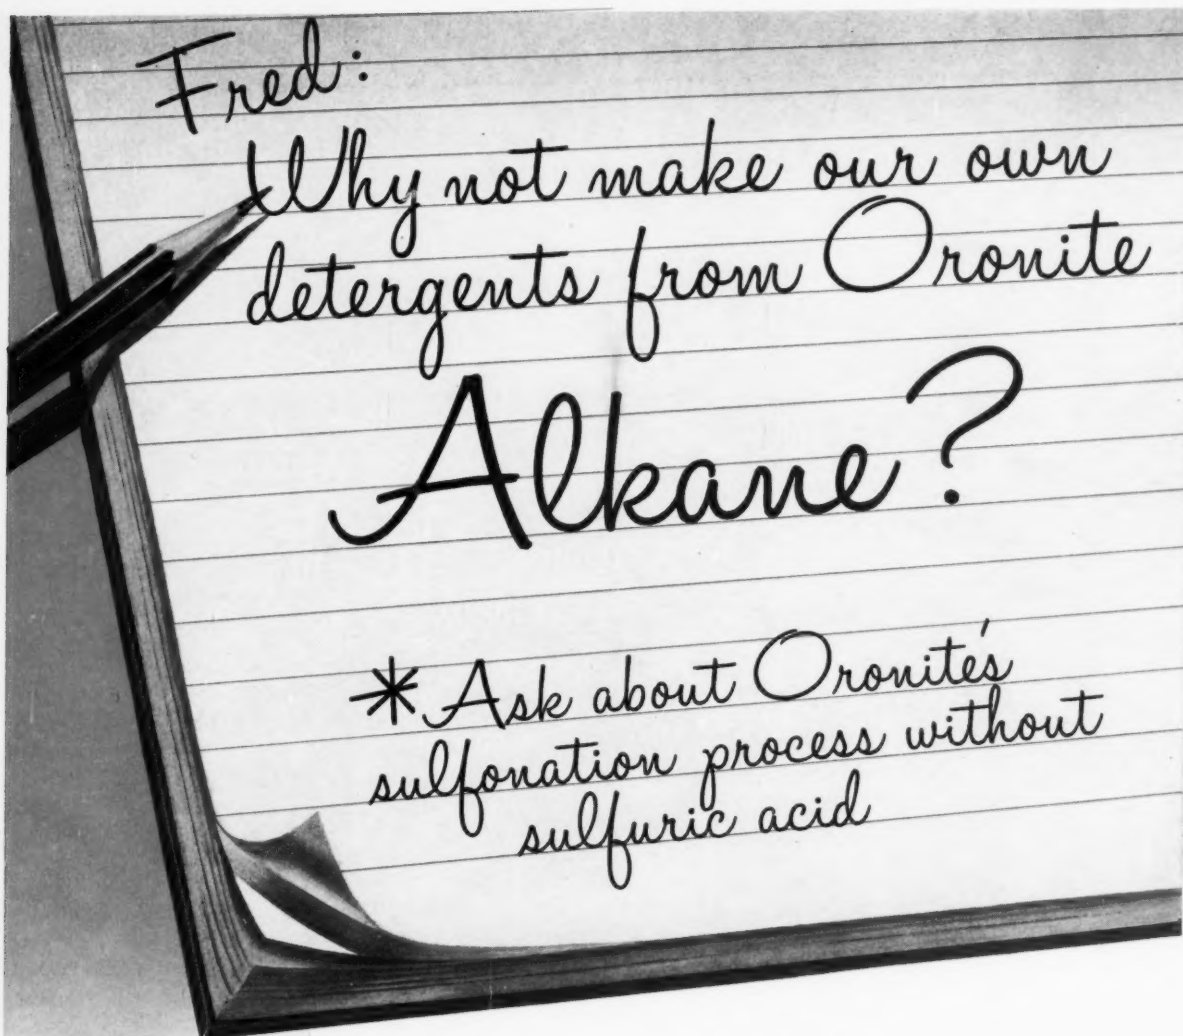 Fred:
Why not make our own
detergents from Oronite
Alkane?
*Ask about Oronite's
sulfonation process without
sulfuric acid